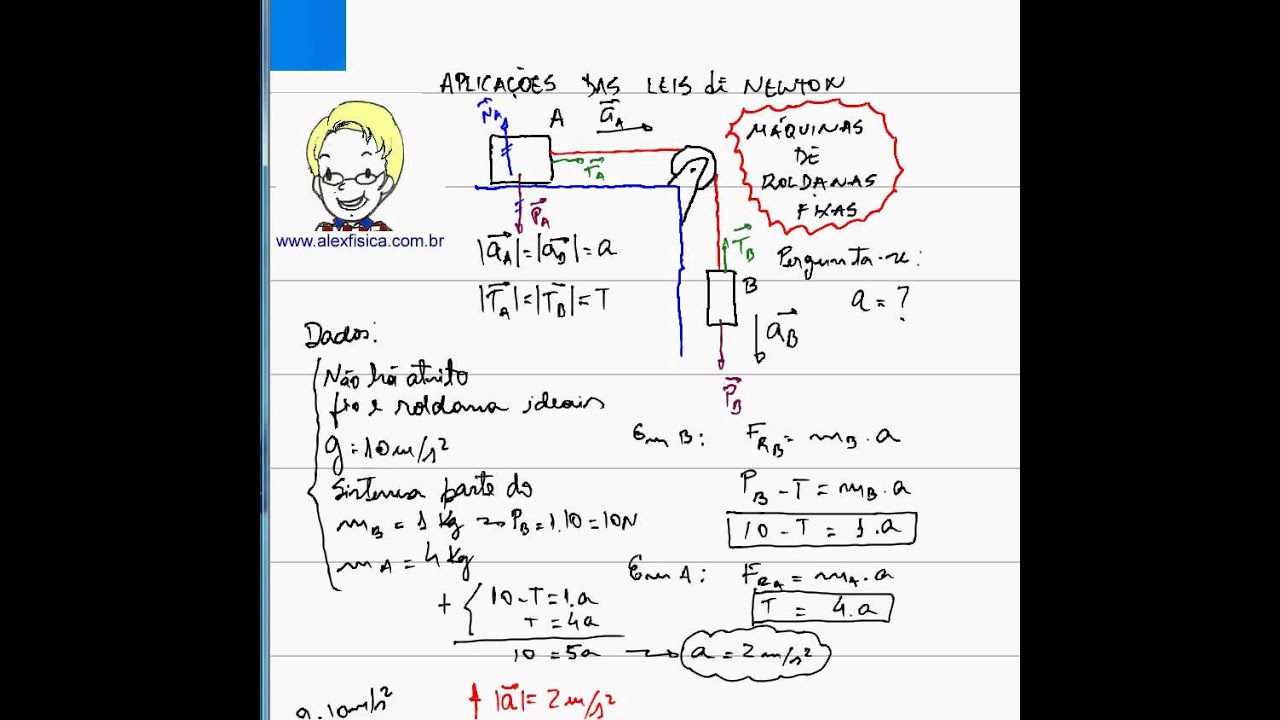 APLICAÇÕES DAS LEIS dE NEWTON
MÁQUINAS
DE
ROLDANAS
FIXAS
N⃗A
A
a⃗A
T⃗A
P⃗A
www.alexfisica.com.br
|a⃗A| = |a⃗B| = a
|T⃗A| = |T⃗B| = T
T⃗B
B
a⃗B
P⃗B
Pergunta-se:
a = ?
Dados:
Não há atrito
fio e roldana ideais
g = 10 m/s²
Sistema parte do
mB = 1 Kg → PB = 1.10 = 10N
mA = 4 Kg
Em B: FRB = mB . a
PB - T = mB . a
10 - T = 1 . a
Em A: FRA = mA . a
T = 4 . a
+ { 10 - T = 1.a
T = 4a
10 = 5a → a = 2 m/s²
|a⃗| = 2 m/s²